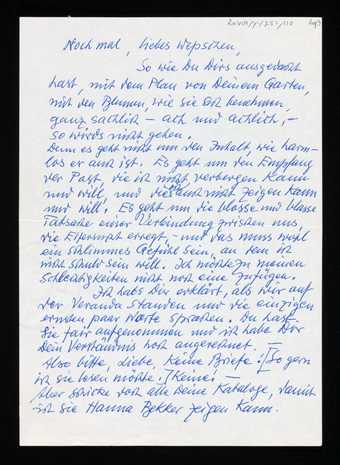 Noch mal, liebes Wepschen,
So wie Du Dirs ausgedacht
hast, mit dem Plan von Deinem Garten,
mit den Blumen, wie sie sich benehmen,
ganz sachlich – ach und achlich, –
so wirds nicht gehen.
Denn es geht nicht um den Inhalt, wie harm-
los er auch ist. Es geht um den Empfang
der Post, die ich nicht verbergen kann
und will, und die ich auch nicht zeigen kann
und will. Es geht um die blosse und blasse
Tatsache einer Verbindung zwischen uns,
die Eifersucht erregt, – und das muss wohl
ein schlimmes Gefühl sein, an dem ich
nicht schuld sein will. Ich möchte meinen
Schlechtigkeiten nicht noch eine zufügen.
Ich habs Dir erklärt, als wir auf
der Veranda standen und die einzigen
ernsten paar Worte sprachen. Du hast
sie fair aufgenommen und ich habe Dir
Dein Verständnis hoch angerechnet.
Also bitte, Liebe, keine Briefe! [So gern
ich sie lesen möchte.] Keine! —
Aber schicke doch alle Deine Kataloge, damit
ich sie Hanna Bekker zeigen kann.